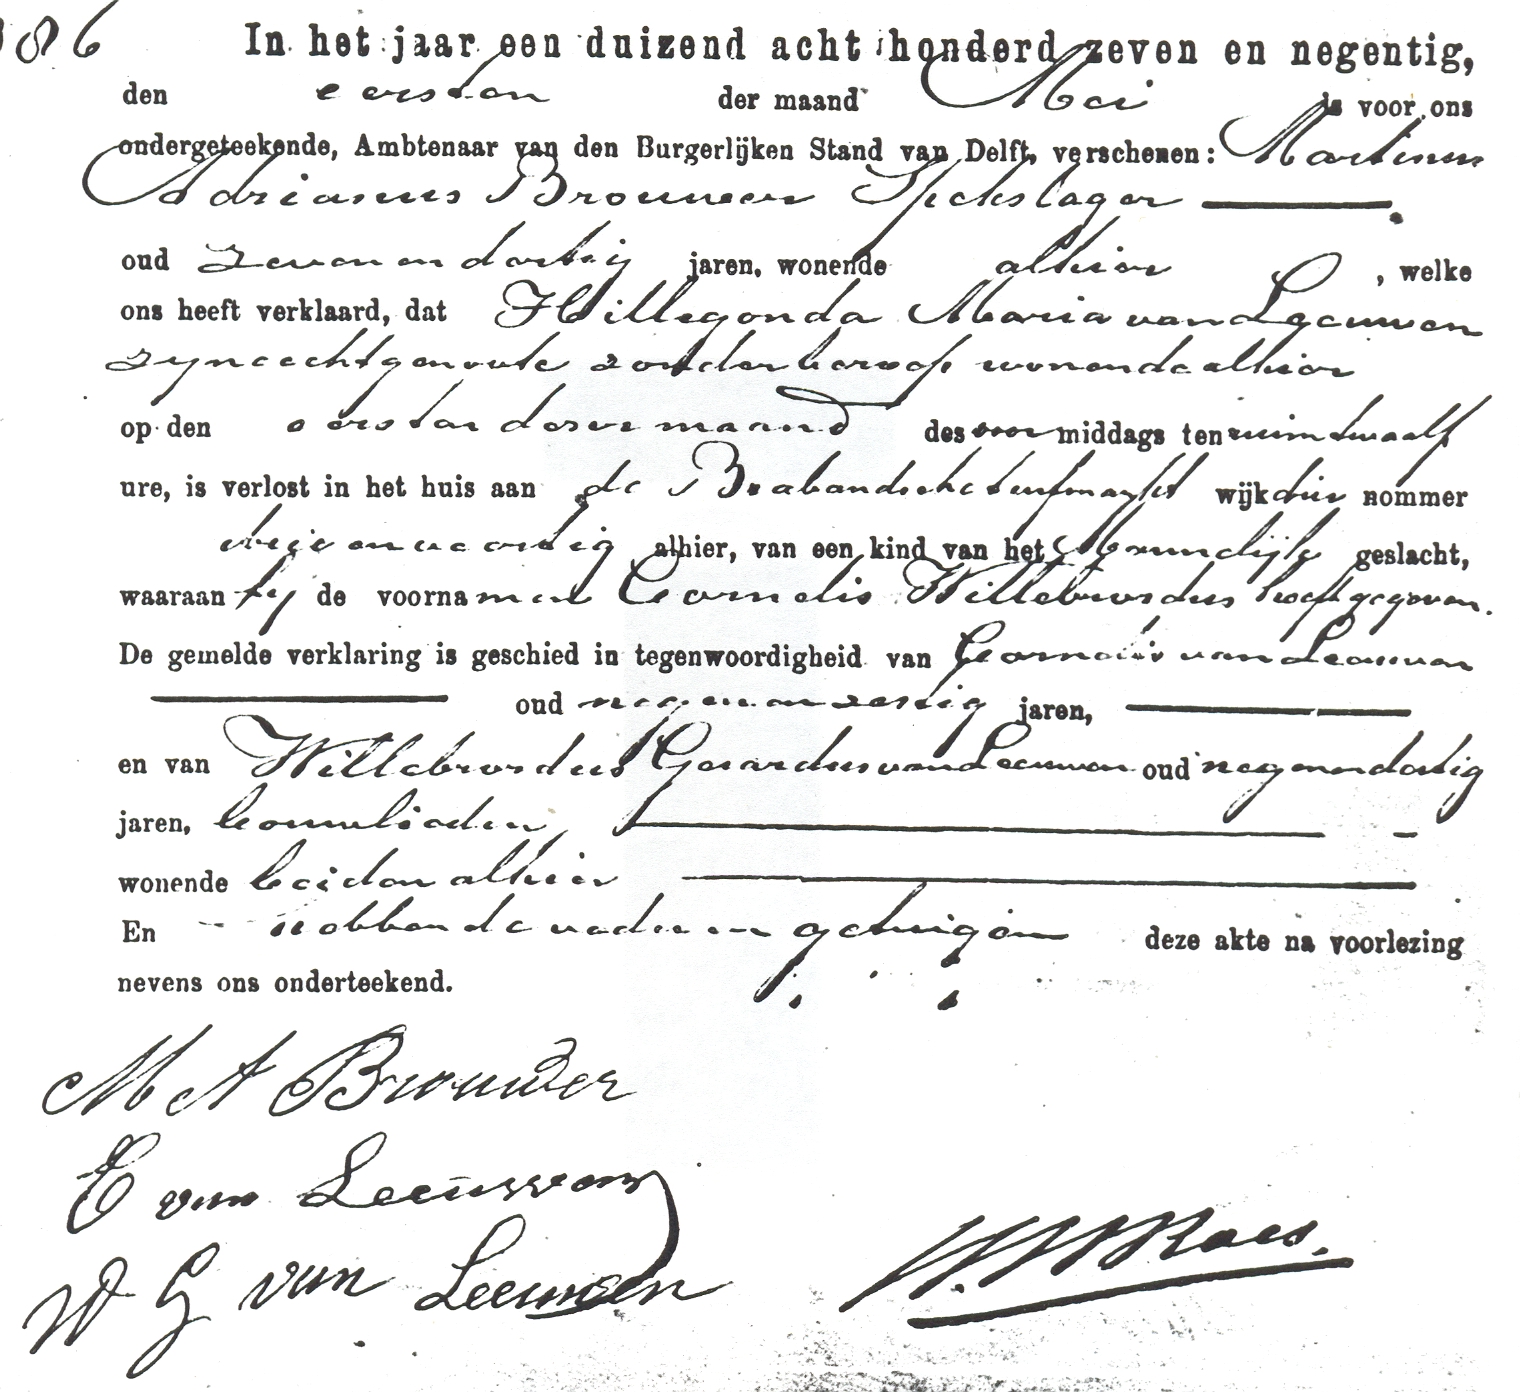 386 In het jaar een duizend acht honderd zeven en negentig,
den eersten der maand Mei is voor ons
ondergeteekende, Ambtenaar van den Burgerlijken Stand van Delft, verschenen: Martinus
Adrianus Brouwer Spekslager
oud zevenendertig jaren, wonende alhier, welke
ons heeft verklaard, dat Hillegonda Maria van Leeuwen
zyne echtgenoote zonder beroep wonende alhier
op den eersten dezer maand des voor middags ten ruim twaalf
ure, is verlost in het huis aan de Brabandsche turfmarkt wijk drie nommer
alhier, van een kind van het Mannelijk geslacht,
waaraan hy de voornamen Cornelis Willebrordus heeft gegeven.
De gemelde verklaring is geschied in tegenwoordigheid van Cornelis van Leeuwen
oud negenenzestig jaren,
en van Willebrordus Gerardus van Leeuwen oud negenendertig
jaren, bouwlieden,
wonende beiden alhier
En hebben de vader en getuigen deze akte na voorlezing
nevens ons onderteekend.
M A Brouwer
C van Leeuwen
W G van Leeuwen
Maes.